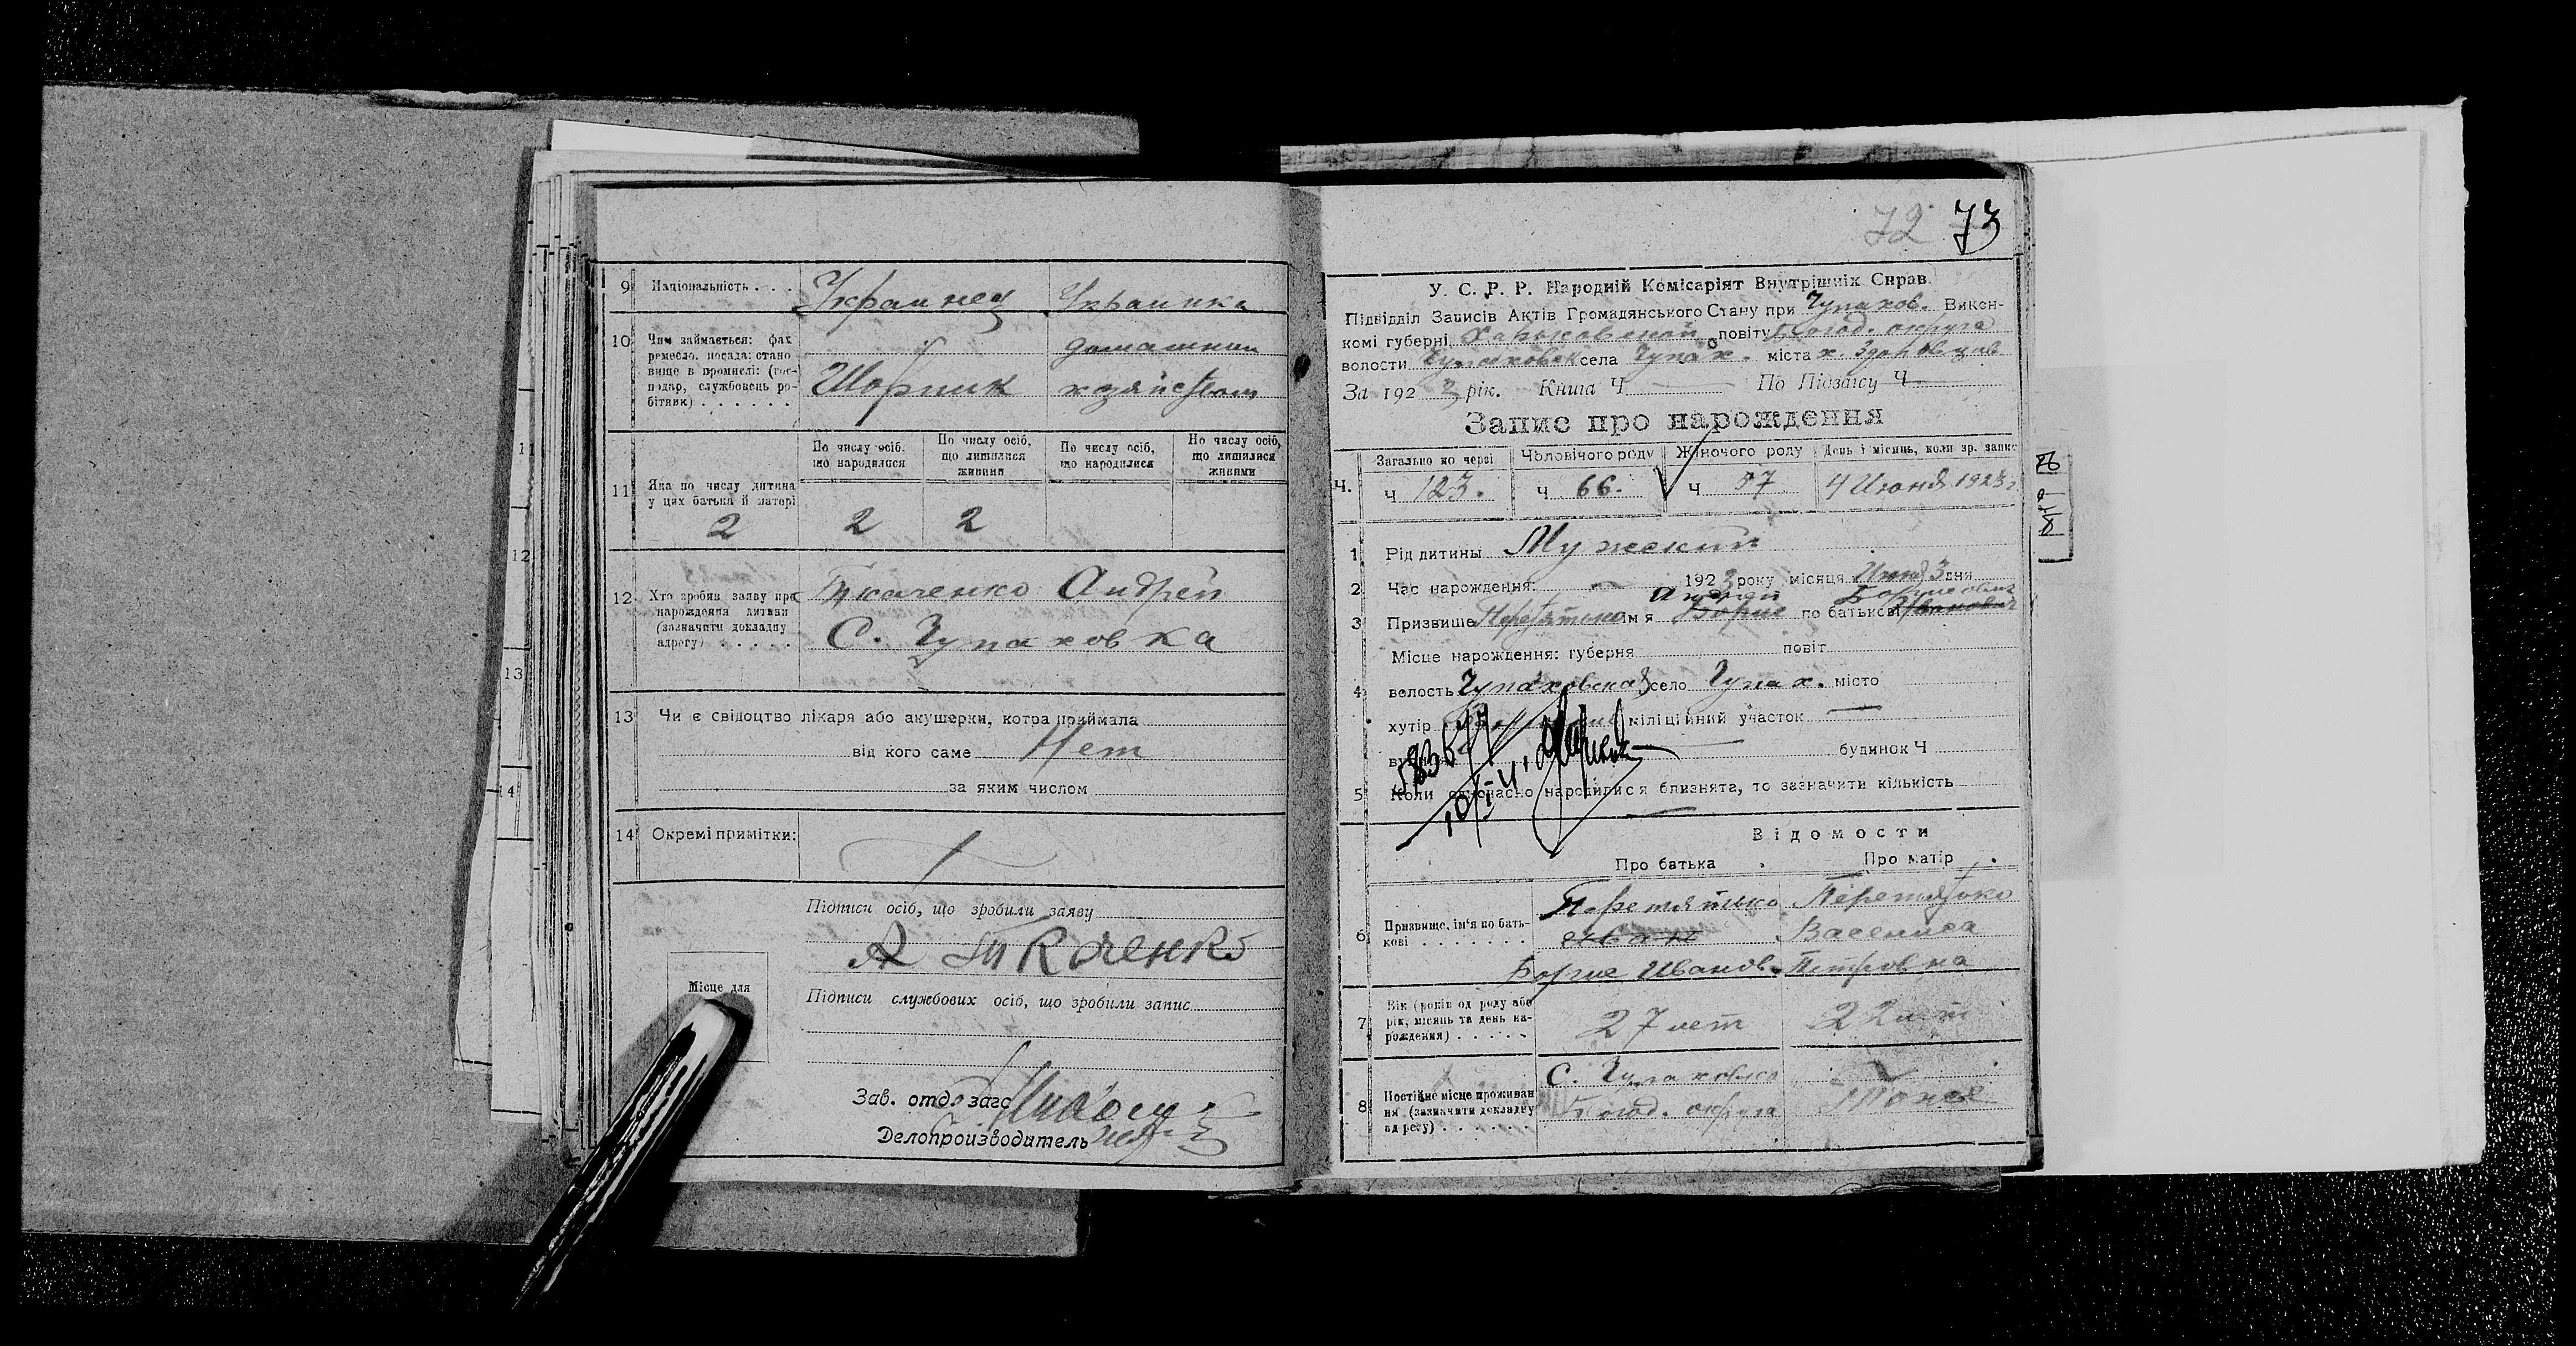 9 Національність . . . Украинец Украинка
10 Чим займається: фах
ремесло, посада: стано
вище в промислі: (гос-
подар, службовець ро-
бітник) . . . . . .
Шорник
домашним
хозяйством
По числу осіб, що народилися
По числу осіб, що лишилися живими
По числу осіб, що народилися
По числу осіб, що лишилися живими
11 Яка по числу дитина
у цих батька й матері
2 2 2
12 Хто зробив заяву про
нарождення дитини
(зазначити докладну
адресу) . . . . .
Ткаченко Андрей
С. Чупаховка
13 Чи є свідоцтво лікаря або акушерки, котра приймала
від кого саме Нет
за яким числом
14 Окремі примітки:
Підписи осіб, що зробили заяву
А Ткаченко
Місце для
Підписи службових осіб, що зробили запис
Зав. отд. загс
Делопроизводитель
11
12
13
14
72 73
У. С. Р. Р. Народній Комісаріят Внутрішніх Справ.
Підвідділ Записів Актів Громадянського Стану при Чупахов. Викон-
комі губерні Харьковской повіту Богод. округа
волости Чупаховск села Чупах. міста х.
За 1923 рік. Книга Ч По Підпису Ч
Запис про нарождення
Загально по черзі Чоловічого роду Жіночого роду День і місяць, коли зр. запис
Ч. Ч 123. Ч 66. Ч 57 4 Июня 1923 г
1 Рід дитини Мужский
2 Час нарождення: 1923 року місяця Июня 3 дня
Андрей Борисович
3 Призвище Перетятько імя Борис по батькові Иванович
Місце нарождення: губерня повіт
4 волость Чупаховская село Чупах. місто
хутір міліційний участок
будинок Ч
5 Коли одночасно народилися близнята, то зазначити кількість
Відомости
Про батька Про матір
6 Призвище, ім'я по бать-
кові . . . . . . .
Перетятько Перетятько
Иван Василиса
Борис Иванов. Петровна
7 Вік (років од роду або
рік, місяць та день на-
рождения) . . . . .
27 лет 22 лет
8 Постійне місце проживан
ня (зазначити докладну
адресу) . . . . . . .
С. Чупаховка
Богод. округа
Тоже